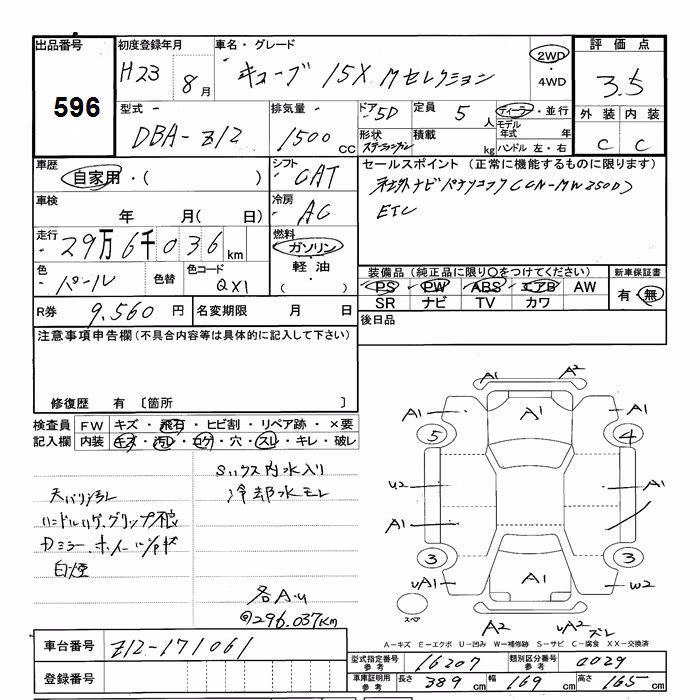 出品番号
596
初度登録年月
H23 8月
車名・グレード
キューブ 15X Mセレクション
2WD
・
4WD
評価点
3.5
外装 内装
C C
型式
DBA-Z12
排気量
1500 CC
ドア 5D
形状 ステーションワゴン
定員 5 人
積載 kg
ディーラー・並行
モデル年式 年
ハンドル 左・右
車歴
自家用・( )
車検
年 月( 日)
走行
29万6千036km
色
パール
色替
色コード
QX1
シフト
CAT
冷房
AC
燃料
ガソリン
・
軽油
( )
セールスポイント(正常に機能するものに限ります)
ETC
装備品(純正品に限り○をつけてください)
PS PW ABS エアB AW
SR ナビ TV カワ
新車保証書
有・無
R券 9,560 円
名変期限 月 日
後日品
注意事項申告欄(不具合内容等は具体的に記入して下さい)
修復歴 有 〔箇所 〕
検査員記入欄
FW キズ・飛石・ヒビ割・リペア跡・×要
内装 キズ・汚レ・コゲ・穴・スレ・キレ・破レ
Sックス内水入り
冷却水モレ
白煙
各AU
@296.037Km
A1 A2
A1 A1 A1
5 4
U2 A1
A1
3 3
UA1 A1 W2
スペア
A2 UA2 ズレ
A-キズ E-エクボ U-凹み W-補修跡 S-サビ C-腐食 XX-交換済
車台番号
Z12-171061
登録番号
型式指定番号 参考
16207
類別区分番号 参考
0029
車庫証明用 参考
長さ 389 cm
幅 169 cm
高さ 165 cm